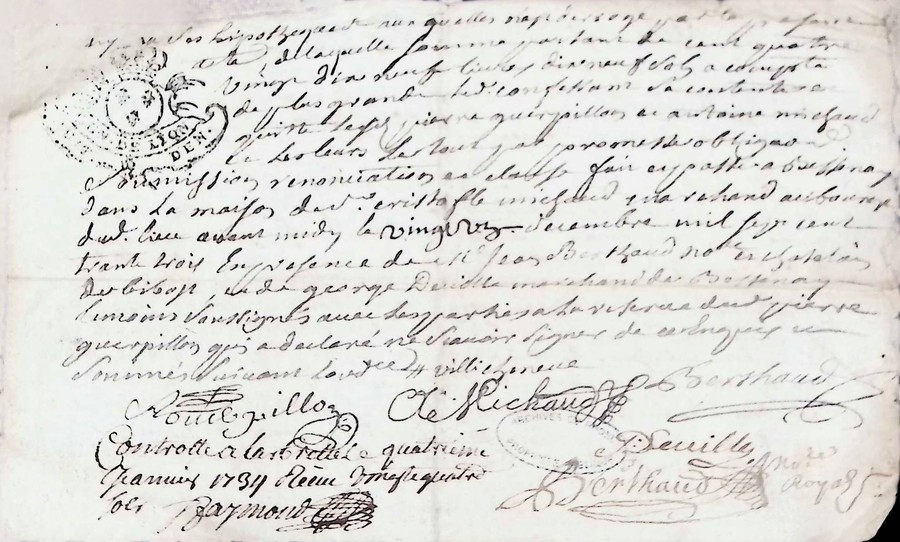 ses hypothequest auxquelles par la presant
de laquelle somme partant de cent quatre
vingt dix neuf livres dix neuf sols a compte
de plus grande confessant sa contente en
quitte pierre guerpillon et antoine michaud
et les leurs le tout par promesse obligaon
soumission renonciation et clause fait et passé a Bessenay
dans la maison de cristofle michaud marchand au bourg
dud. lieu avant midy le vingt six decembre mil sept cent
trante trois En presence de Me Jean Berthaud not. et chatelain
de bibost et de george Deville marchand de Bessenay
temoins soussignés avec les parties a la reserve dud pierre
guerpillon qui a declaré ne scavoir signer de ce enquis et
sommés suivant lord.ce
Michaud Berthaud
Controllé a la Brelle le quatrieme
Janvier 1734 Receu vingt quatre
sols Raymond
Deville
Berthaud Nore Royal
DE LYON